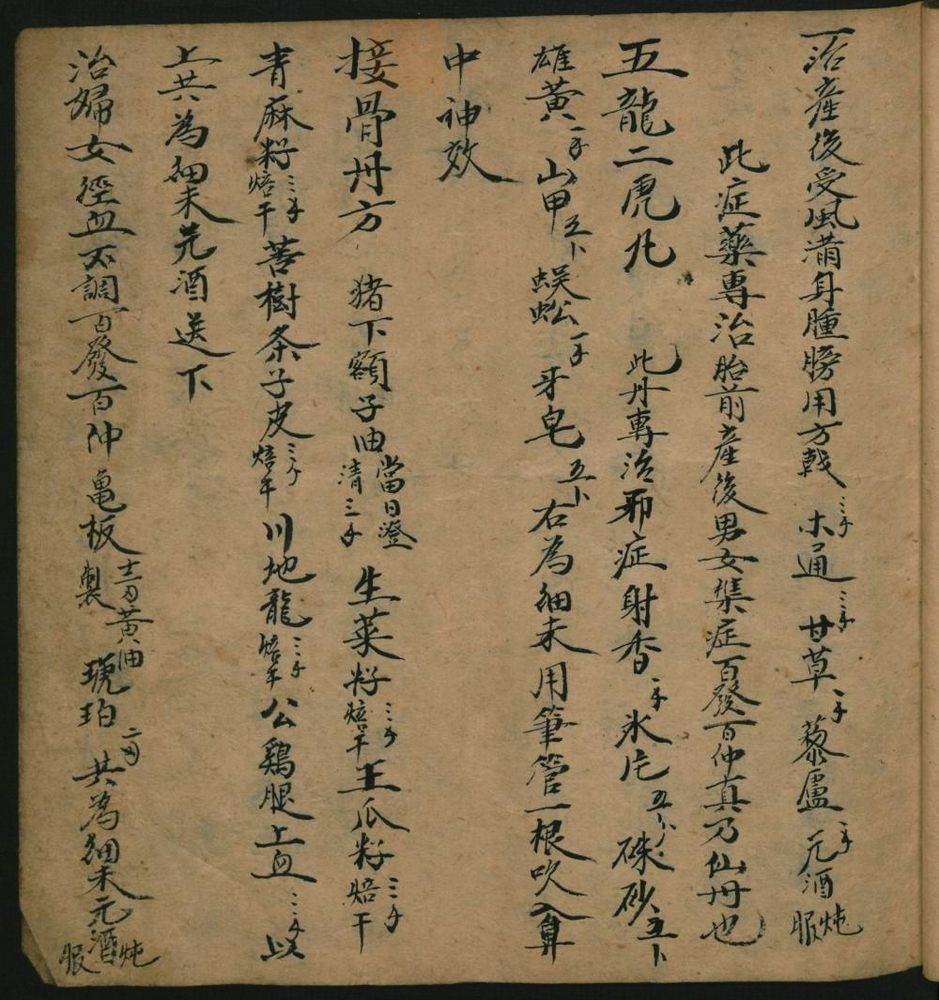 一治產後受風滿身腫膀用方戟三子木通三子甘草一子藜盧一子元酒炖服
此症藥專治胎前產後男女集症百發百仲真乃仙丹也
五龍二虎九 此丹專治邪症射香一子氷片五卜硃砂五卜
雄黃一子山甲五卜蜈蚣一子牙皂五卜右為細末用筆管一根吹入鼻
中神效
接骨丹方 猪下額子油當日澄清三子生菜籽三子焙干王瓜籽三子焙干
青麻籽三子焙干菩樹条子皮三子焙干川地龍三子焙干公鷄腿上血三子以
上共為細末元酒送下
治婦女徑血不調百發百仲龜板黃油製琥珀共為細末元酒炖服